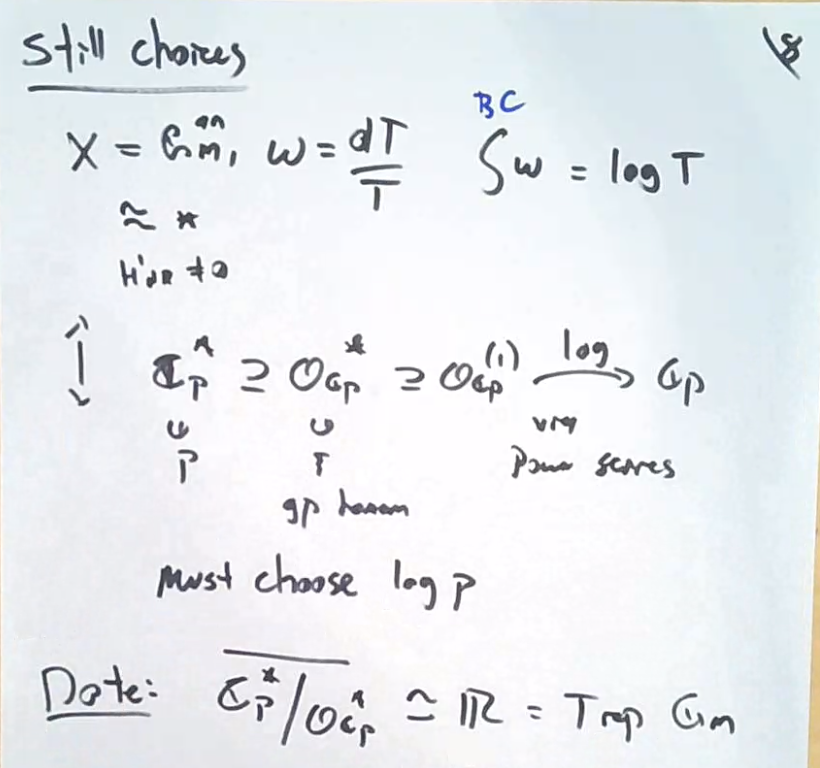 Still choices 18
BC
X = Gm^an, ω = dT/T ∫ω = log T
≈ *
H'dR ≠ 0
ℂp* ⊇ Oℂp* ⊇ Oℂp^(1) → log ℂp
∪ ∪ via
P power series
gp homom
Must choose log p
Note: ℂp*/Oℂp* ≃ ℝ = Trop Gm